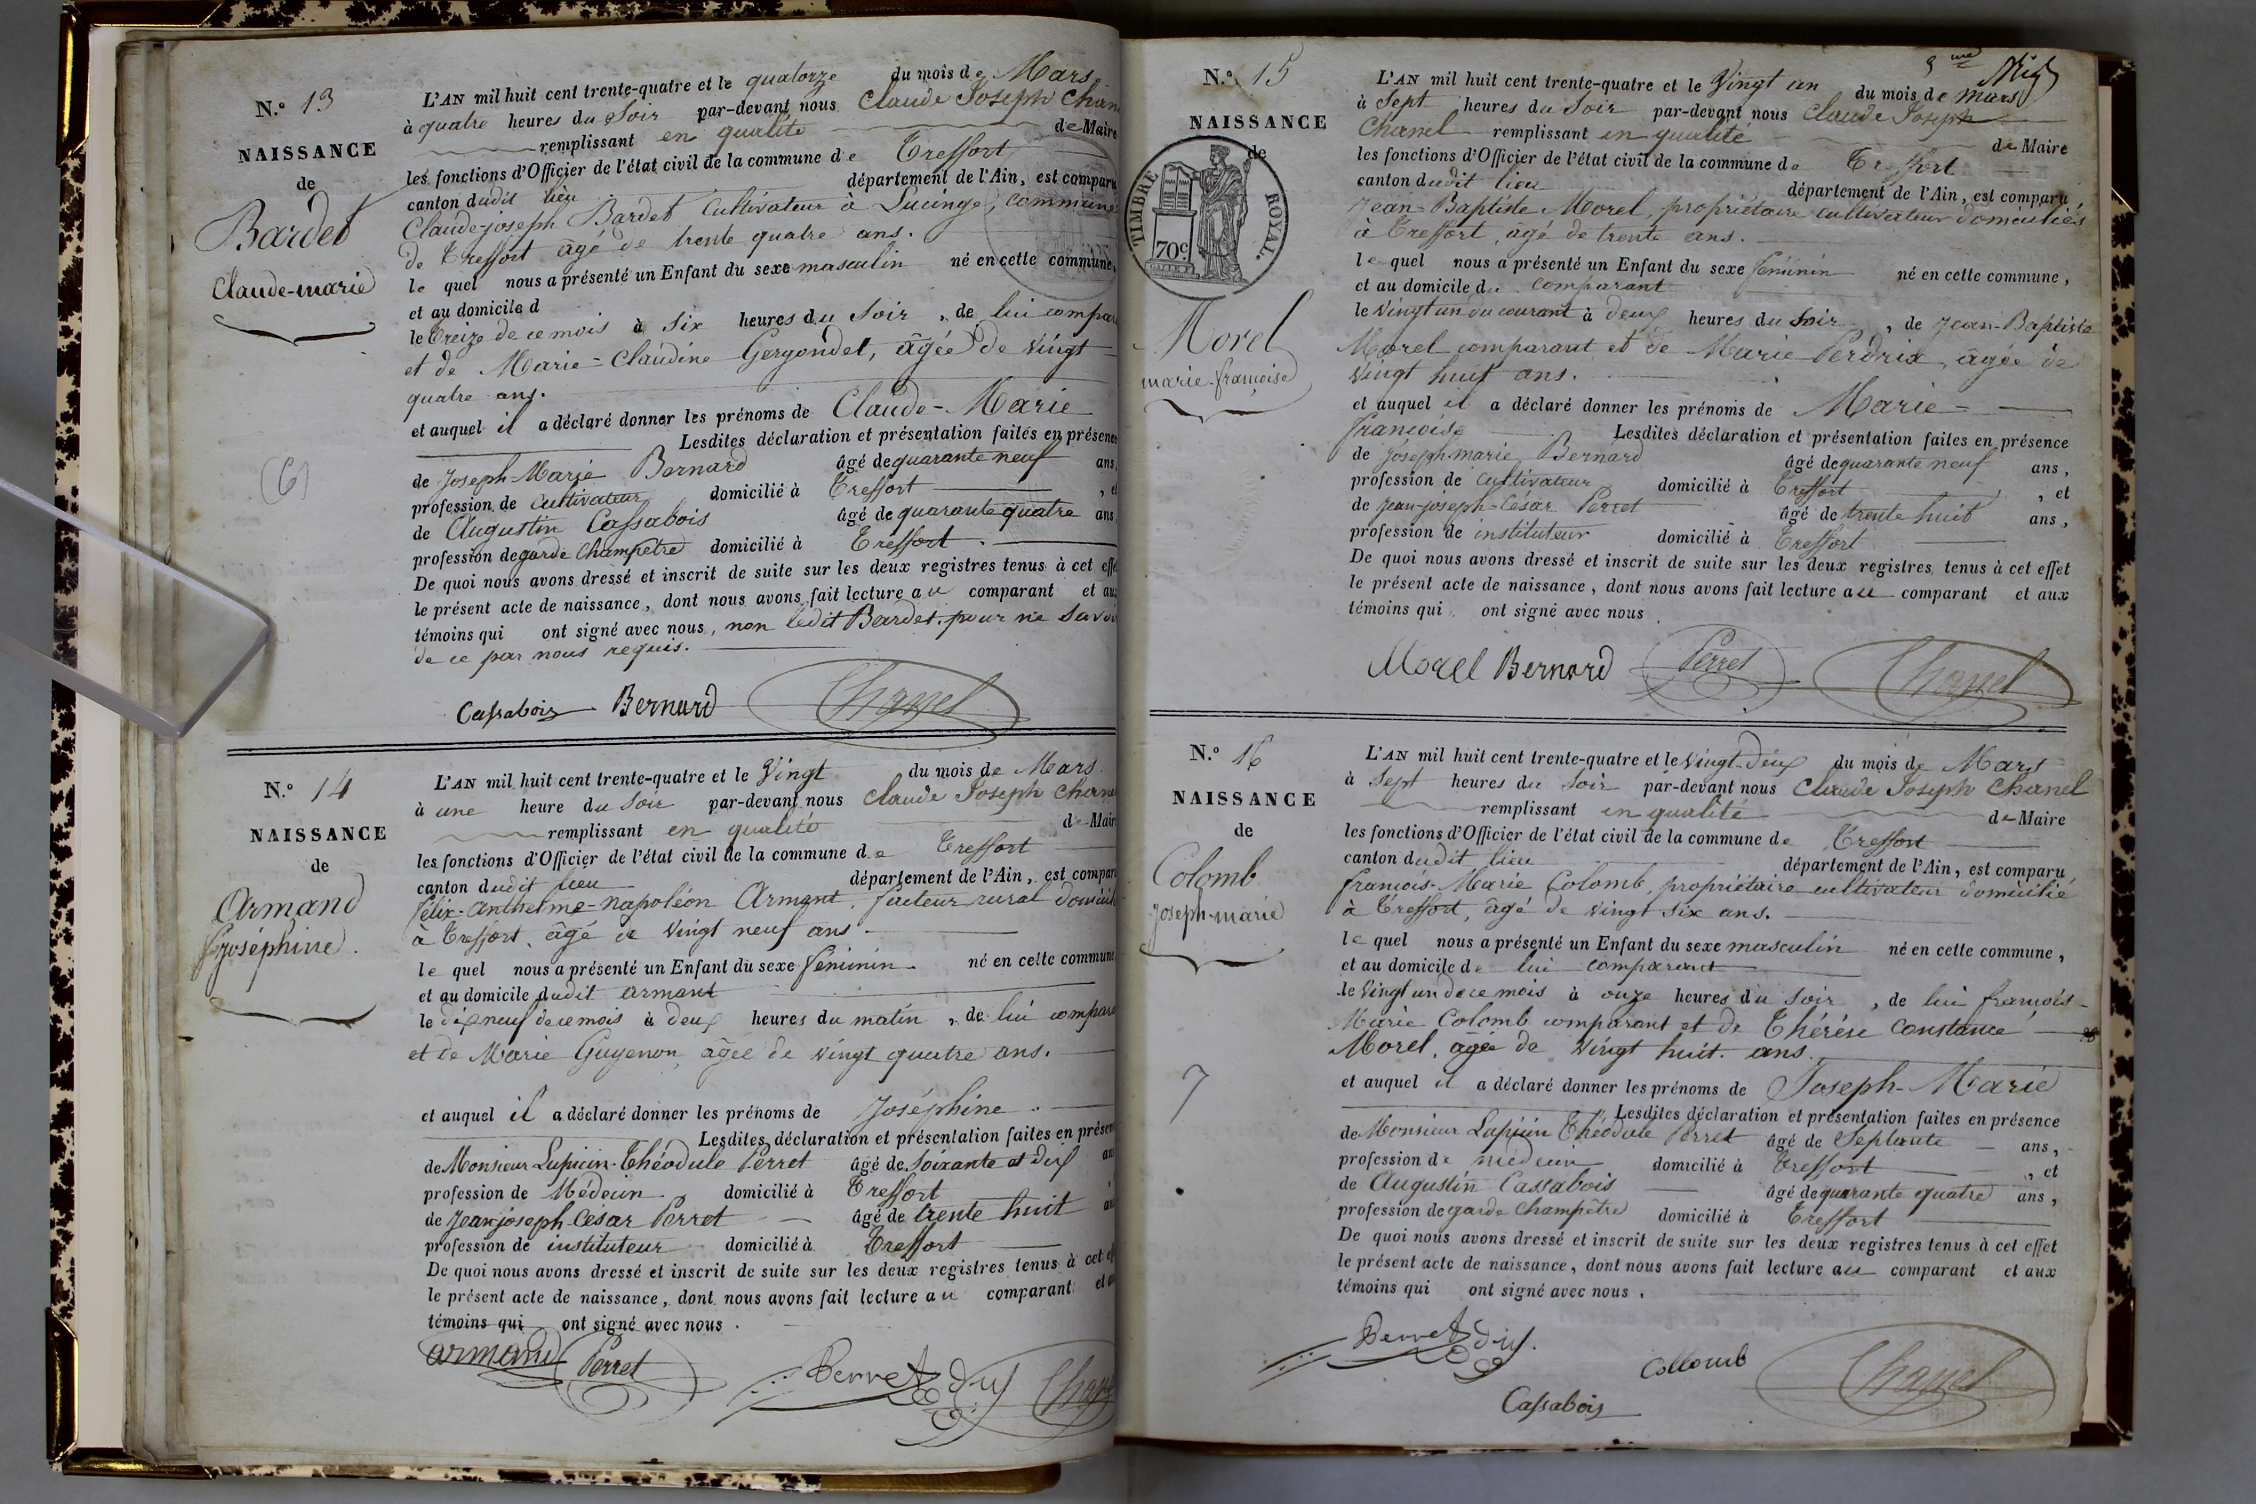 N.o 13
NAISSANCE
de
Bardet
Claude-marie
(6)
L'AN mil huit cent trente-quatre et le quatorze du mois de Mars
à quatre heures du Soir par-devant nous Claude Joseph Chan
remplissant en qualité de Maire
les fonctions d'Officier de l'état civil de la commune de Treffort
canton dudit lieu département de l'Ain, est comparu
Claude-joseph Bardet Cultivateur à Lucinge, commune
de Treffort âgé de trente quatre ans.
le quel nous a présenté un Enfant du sexe masculin né en cette commune,
et au domicile d
le treize de ce mois à Six heures du Soir, de lui compar
et de Marie-Claudine Gergondet, âgée de Vingt
quatre ans.
et auquel il a déclaré donner les prénoms de Claude-Marie
Lesdites déclaration et présentation faites en présence
de Joseph-Marie Bernard âgé de quarante neuf ans,
profession de Cultivateur domicilié à Treffort, et
de Augustin Cassabois âgé de quarante quatre ans
profession de garde Champêtre domicilié à Treffort.
De quoi nous avons dressé et inscrit de suite sur les deux registres tenus à cet effe
le présent acte de naissance, dont nous avons fait lecture au comparant et aux
témoins qui ont signé avec nous, non ledit Bardet pour ne Savoi
de ce par nous requis.
Cassabois Bernard Chanel
N.o 14
NAISSANCE
de
Armand
Joséphine.
L'AN mil huit cent trente-quatre et le Vingt du mois de Mars
à une heure du Soir par-devant nous Claude Joseph Chane
remplissant en qualité de Mair
les fonctions d'Officier de l'état civil de la commune de Treffort
canton dudit lieu département de l'Ain, est compar
félix-anthelme-napoléon Armant facteur rural domicili
à Treffort, âgé de Vingt neuf ans
le quel nous a présenté un Enfant du sexe féminin né en cette commune
et au domicile dudit armant
le dix neuf de ce mois à deux heures du matin, de lui compara
et de Marie Guyenon, âgée de vingt quatre ans.
et auquel il a déclaré donner les prénoms de Joséphine.
Lesdites déclaration et présentation faites en présen
de Monsieur Lupicin-Théodule Perret âgé de soixante et dix an
profession de Médecin domicilié à Treffort
de Jean-joseph-César Perret âgé de trente huit an
profession de instituteur domicilié à Treffort
De quoi nous avons dressé et inscrit de suite sur les deux registres tenus à cet ef
le présent acte de naissance, dont nous avons fait lecture au comparant et au
témoins qui ont signé avec nous.
armand Perret Perret d.m Chan
N.o 15
NAISSANCE
de
TIMBRE ROYAL.
70c
Morel
marie-françoise
L'AN mil huit cent trente-quatre et le Vingt un du mois de Mars
à Sept heures du Soir par-devant nous Claude Joseph
Chanel remplissant en qualité de Maire
les fonctions d'Officier de l'état civil de la commune de Treffort
canton dudit lieu département de l'Ain, est comparu
Jean-Baptiste Morel, propriétaire cultivateur domiciliés
à Treffort, âgé de trente ans.
le quel nous a présenté un Enfant du sexe féminin né en cette commune,
et au domicile du comparant
le vingt un du courant à deux heures du Soir, de Jean-Baptiste
Morel comparant et de Marie Perdrix, âgée de
Vingt huit ans.
et auquel il a déclaré donner les prénoms de Marie-
françoise Lesdites déclaration et présentation faites en présence
de joseph-marie Bernard âgé de quarante neuf ans,
profession de Cultivateur domicilié à Treffort, et
de Jean-joseph-César Perret âgé de trente huit ans,
profession de instituteur domicilié à Treffort
De quoi nous avons dressé et inscrit de suite sur les deux registres tenus à cet effet
le présent acte de naissance, dont nous avons fait lecture au comparant et aux
témoins qui ont signé avec nous
Morel Bernard Perret Chanel
N.o 16
NAISSANCE
de
Colomb
Joseph-marie
7
L'AN mil huit cent trente-quatre et le vingt-deux du mois de Mars
à Sept heures du Soir par-devant nous Claude Joseph Chanel
remplissant en qualité de Maire
les fonctions d'Officier de l'état civil de la commune de Treffort
canton dudit lieu département de l'Ain, est comparu
françois-Marie Colomb, propriétaire cultivateur domicilié
à Treffort, âgé de vingt six ans.
le quel nous a présenté un Enfant du sexe masculin né en cette commune,
et au domicile de lui comparant
le Vingt un de ce mois à onze heures du Soir, de lui françois-
Marie Colomb comparant et de Thérèse Constance
Morel, âgée de vingt huit ans
et auquel il a déclaré donner les prénoms de Joseph-Marie
Lesdites déclaration et présentation faites en présence
de Monsieur Lupicin Théodule Perret âgé de Septante ans,
profession de médecin domicilié à Treffort, et
de Augustin Cassabois âgé de quarante quatre ans,
profession de garde Champêtre domicilié à Treffort
De quoi nous avons dressé et inscrit de suite sur les deux registres tenus à cet effet
le présent acte de naissance, dont nous avons fait lecture au comparant et aux
témoins qui ont signé avec nous.
Perret d.m.
Collomb
Chanel
Cassabois